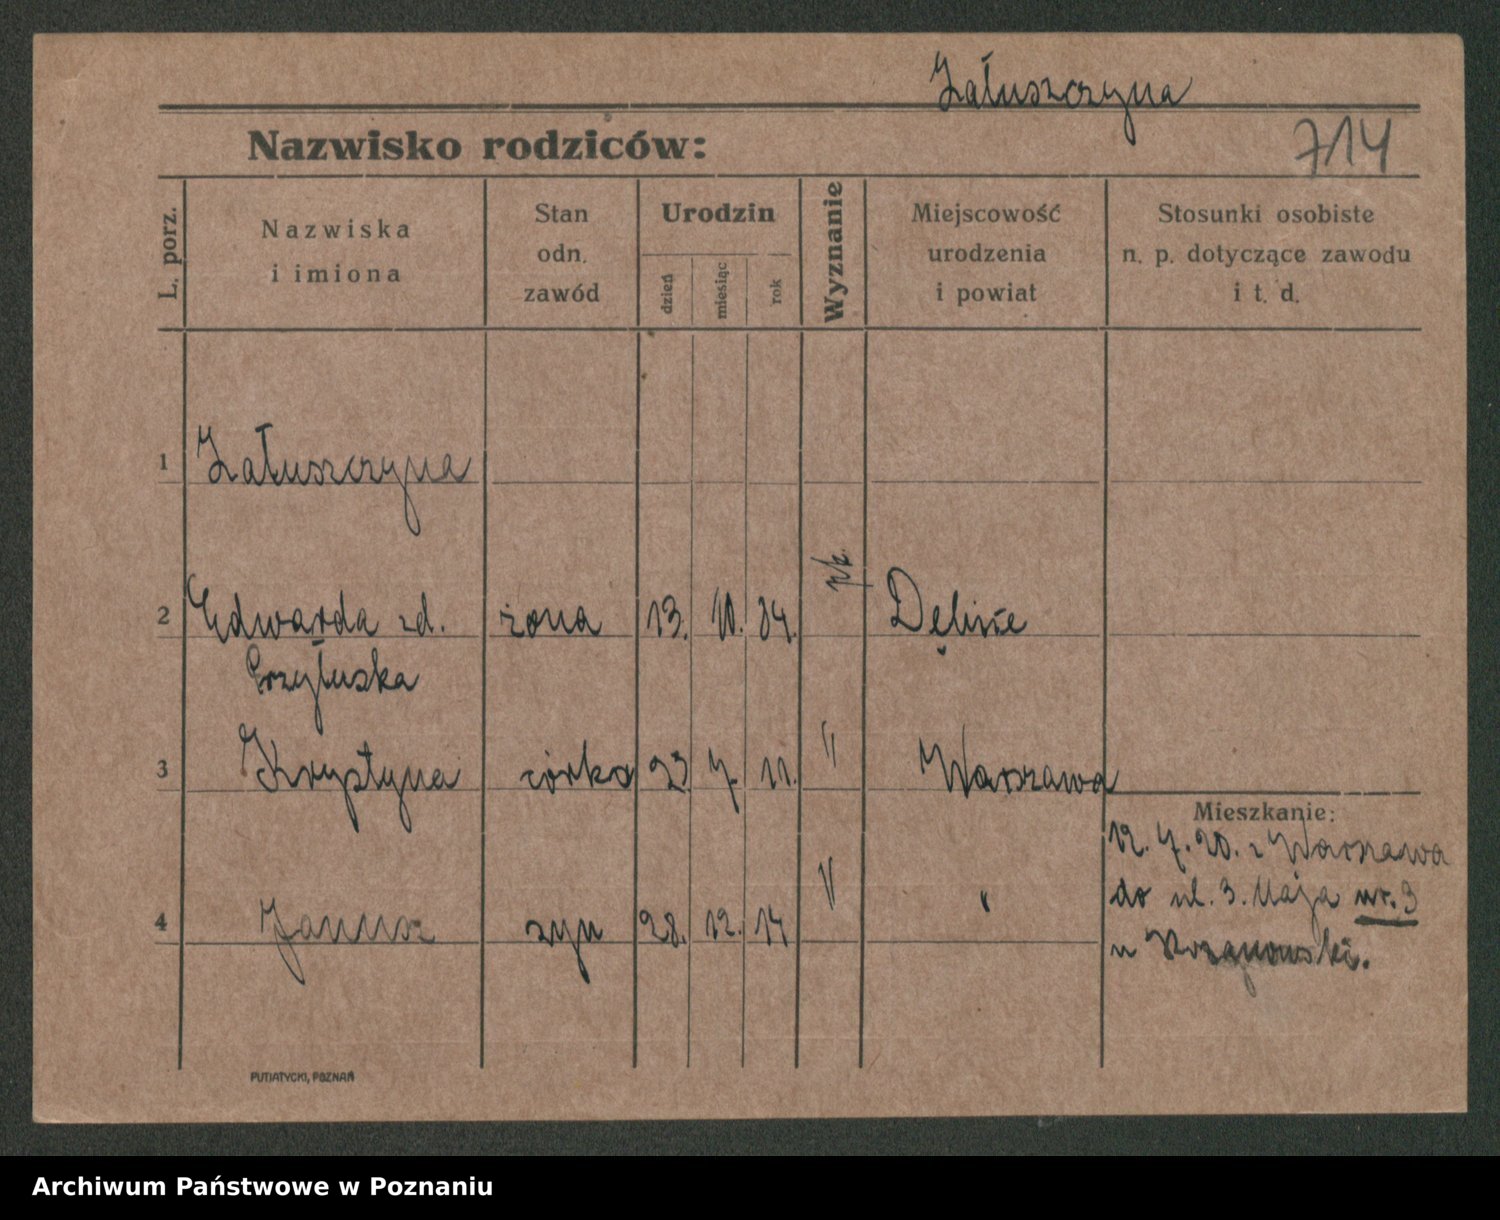 Załuszczyna
Nazwisko rodziców:
714
L. porz.
Nazwiska
i imiona
Stan
odn.
zawód
Urodzin
dzień
miesiąc
rok
Wyznanie
Miejscowość
urodzenia
i powiat
Stosunki osobiste
n. p. dotyczące zawodu
i t. d.
1 Załuszczyna
2 Edwarda zd. żona 13. 10. 84. rk. Dębice
Przyłuska
3 Krystyna córka 23. 7. 11. " Warszawa
Mieszkanie:
12. 7. 20. z Warszawa
4 Janusz syn 28. 12. 14 " "
do ul. 3. Maja nr. 3
u
PUTIATYCKI, POZNAŃ
Archiwum Państwowe w Poznaniu